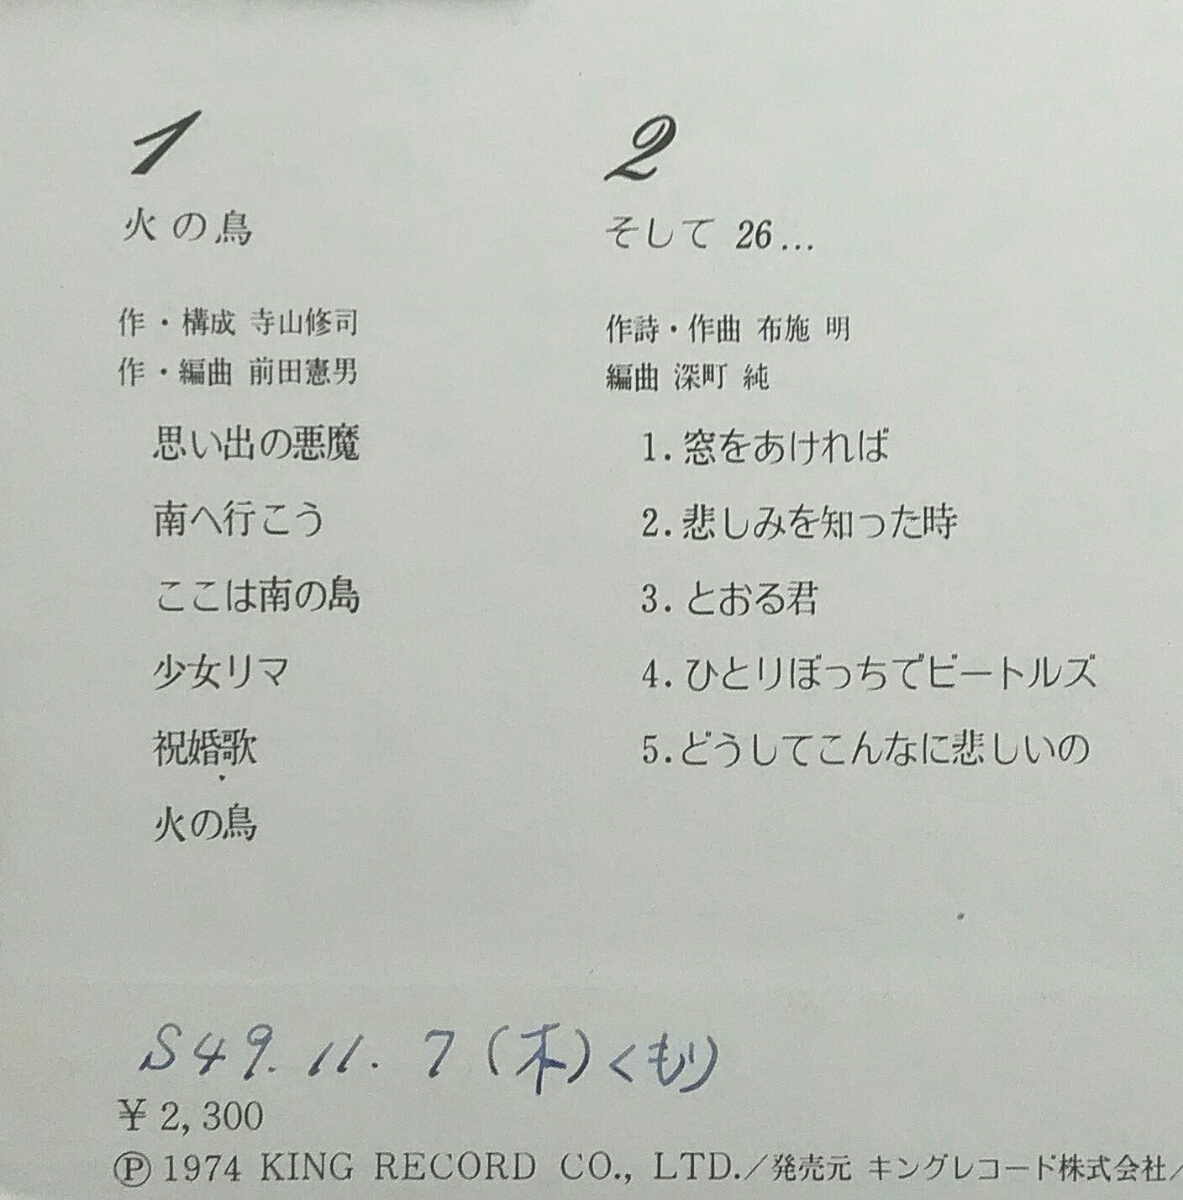 1
火の鳥
作・構成 寺山修司
作・編曲 前田憲男
思い出の悪魔
南へ行こう
ここは南の島
少女リマ
祝婚歌
火の鳥
2
そして 26...
作詩・作曲 布施 明
編曲 深町 純
1.窓をあければ
2.悲しみを知った時
3.とおる君
4.ひとりぼっちでビートルズ
5.どうしてこんなに悲しいの
S49.11.7(木)くもり
¥2,300
Ⓟ1974 KING RECORD CO., LTD./発売元 キングレコード株式会社/